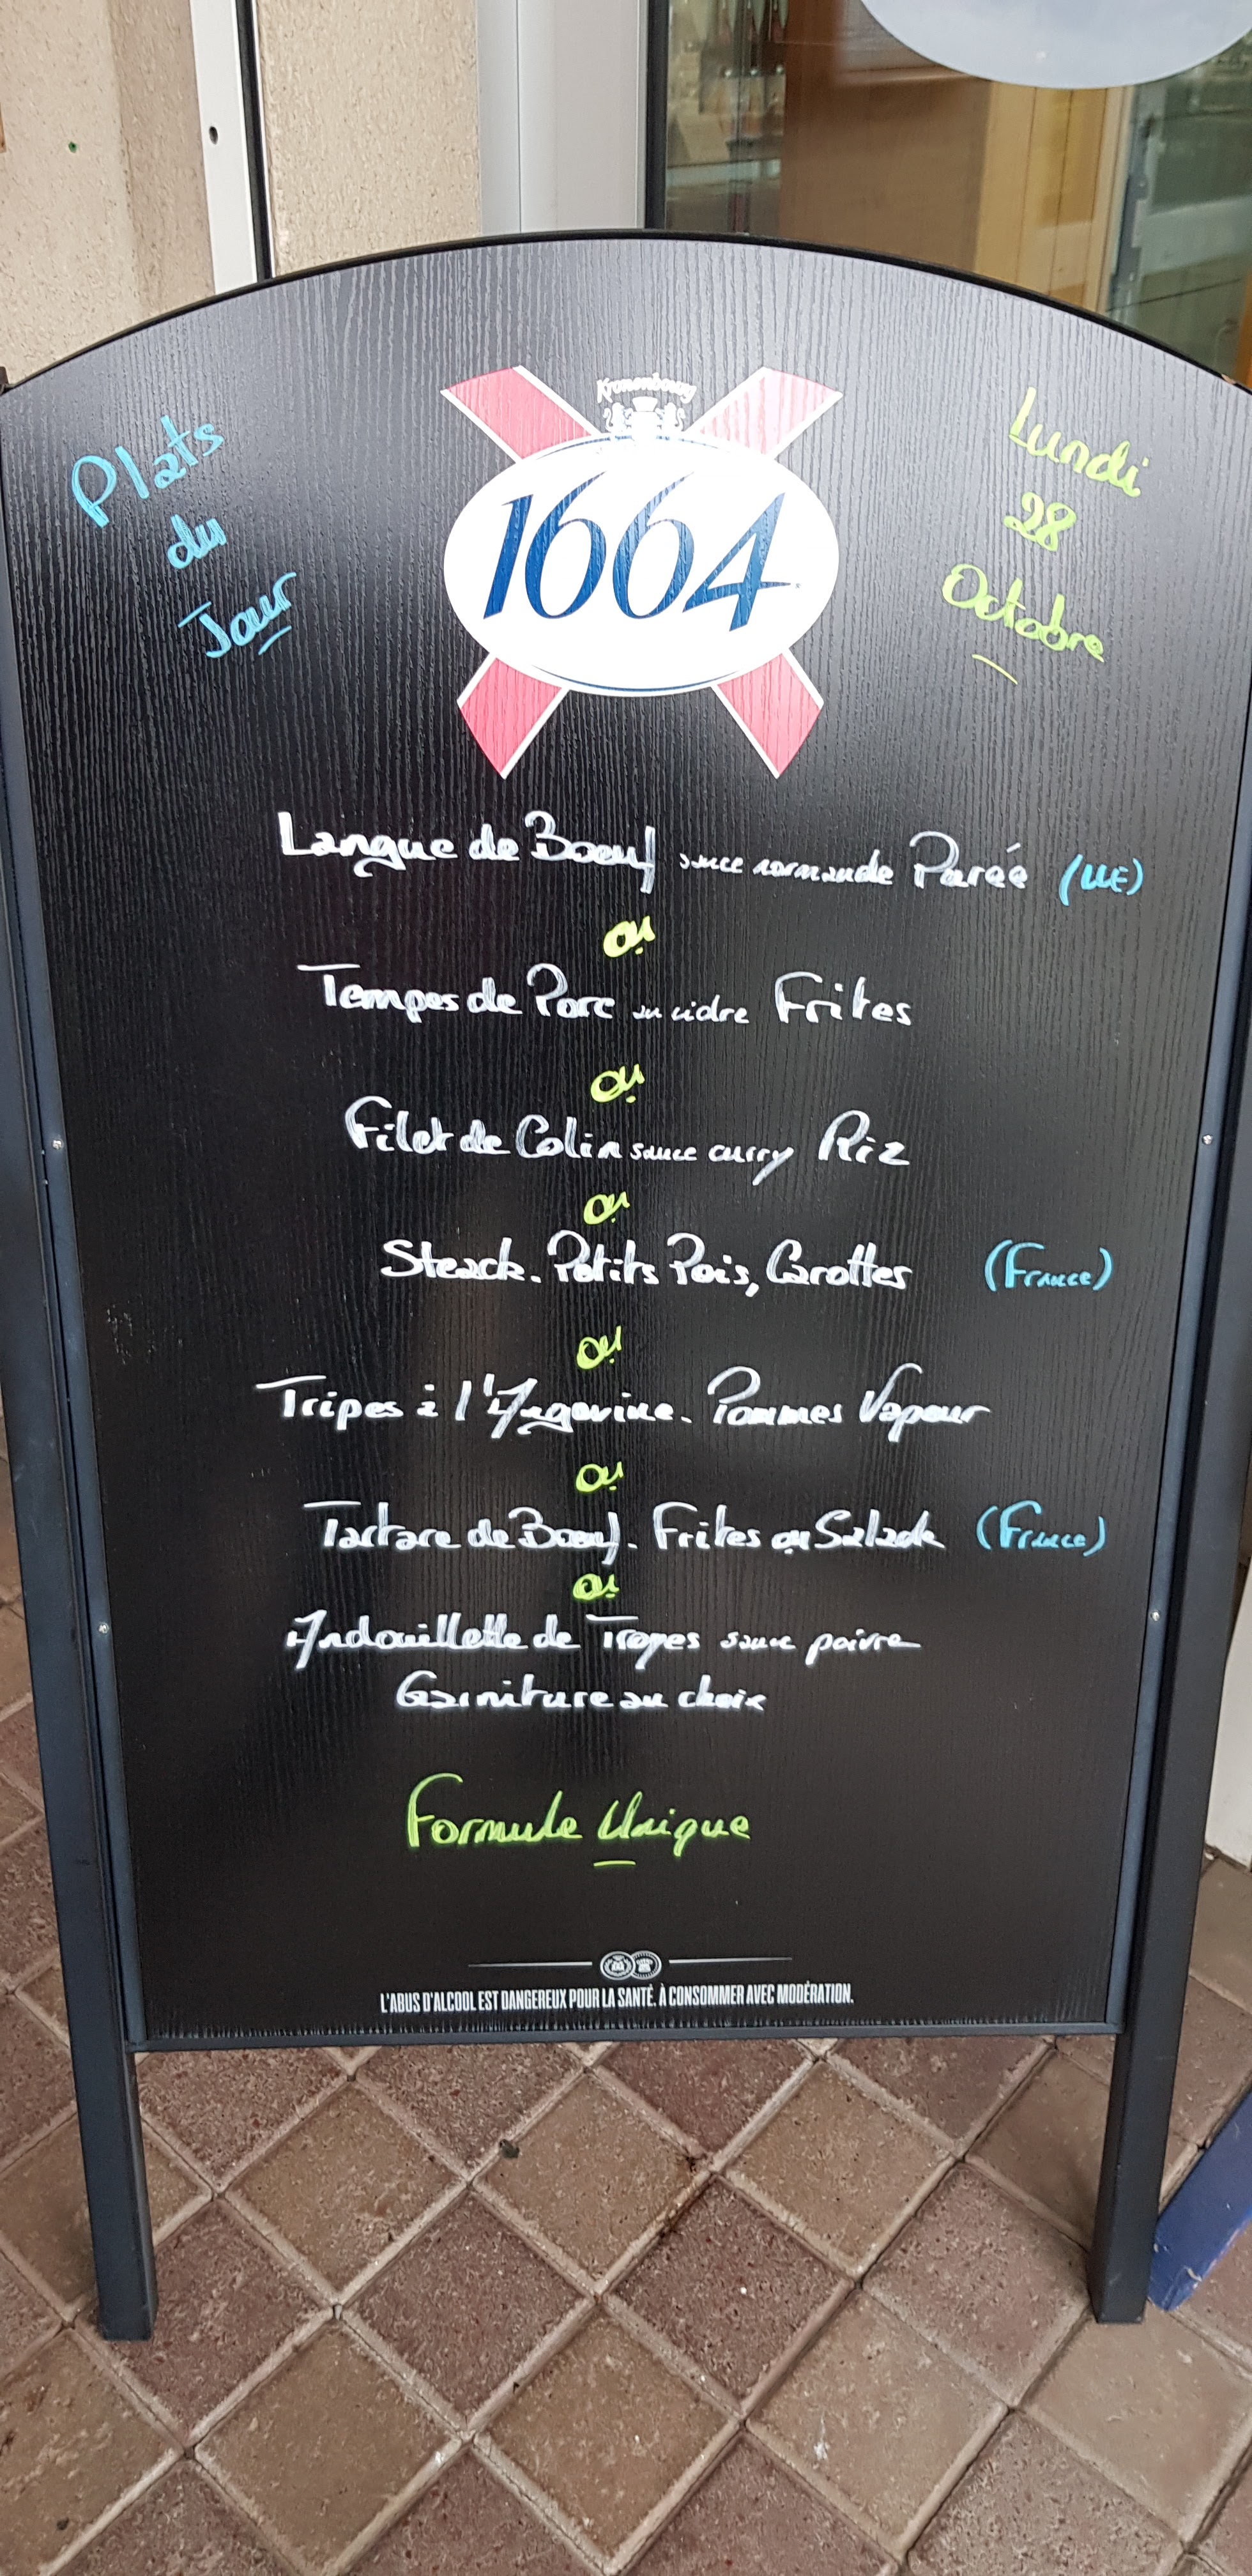 Plats
du
Jour
Kronenbourg
1664
Lundi
28
Octobre
Langue de Boeuf sauce normande Purée (UE)
ou
Tempes de Porc au cidre Frites
ou
Filet de Colin sauce curry Riz
ou
Steack. Petits Pois, Carottes (France)
ou
Tripes à l'Angevine. Pommes Vapeur
ou
Tartare de Boeuf. Frites ou Salade (France)
ou
Andouillette de Troyes sauce poivre
Garniture au choix
Formule Unique
L'ABUS D'ALCOOL EST DANGEREUX POUR LA SANTÉ. À CONSOMMER AVEC MODÉRATION.